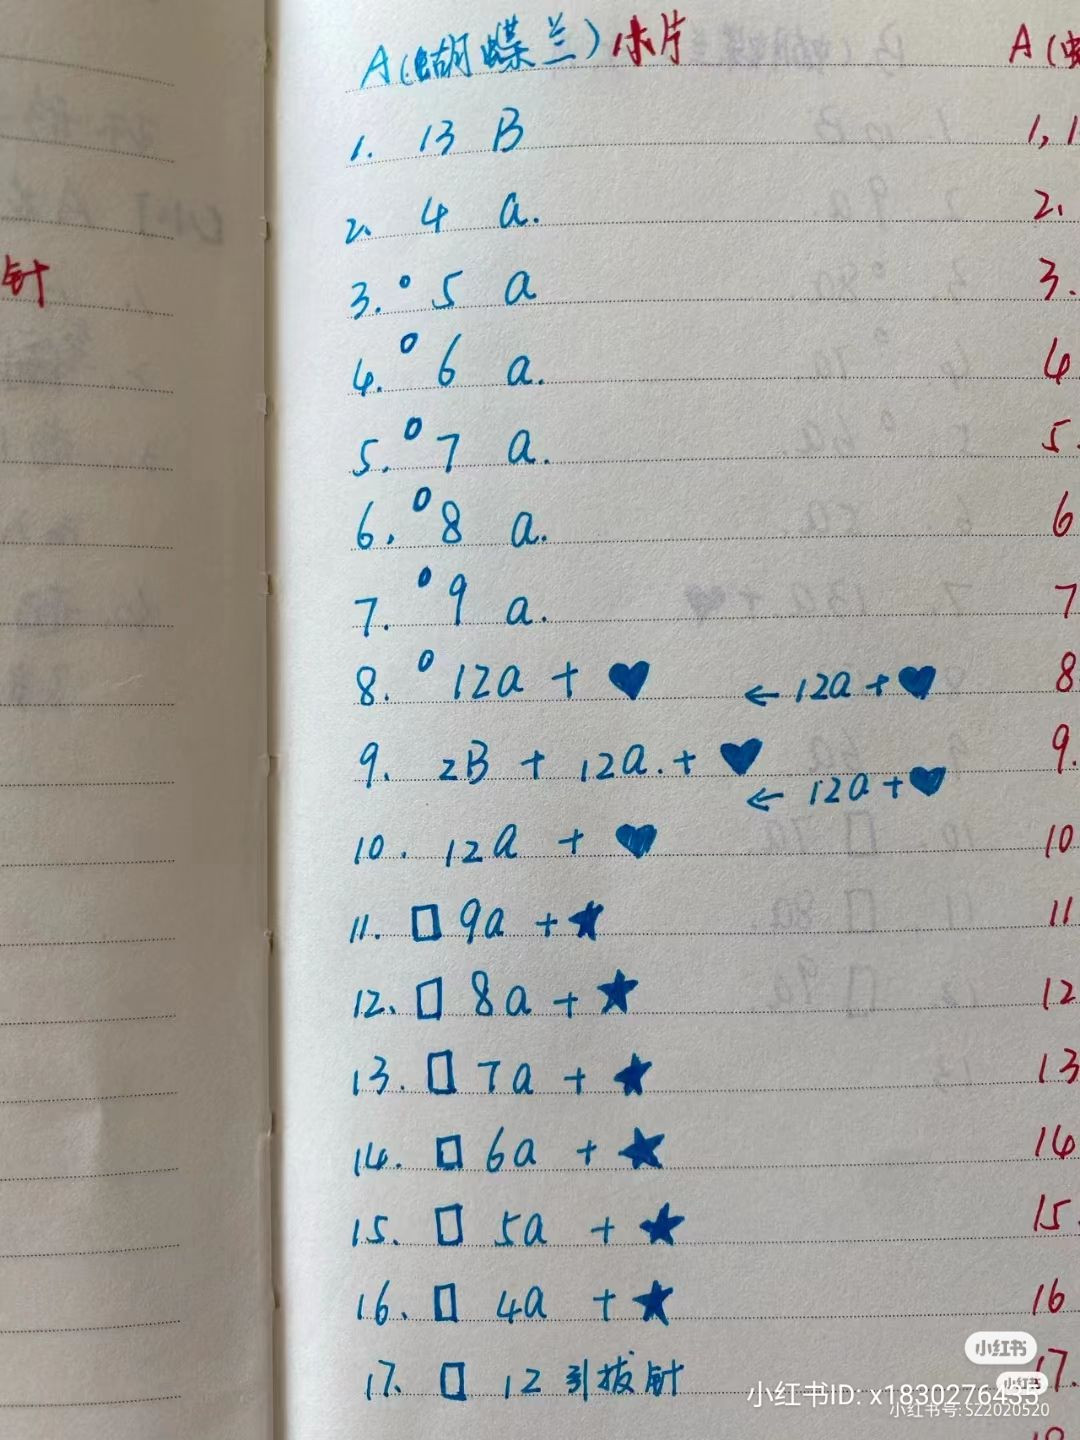 针
A(蝴蝶兰)1片
1. 13 B
2. 4 a.
3.° 5 a
4.° 6 a.
5.° 7 a.
6.° 8 a.
7.° 9 a.
8.° 12a + ♥ ← 12a + ♥
9. 2B + 12a. + ♥
← 12a + ♥
10. 12a + ♥
11. □ 9a + ★
12. □ 8a + ★
13. □ 7a + ★
14. □ 6a + ★
15. □ 5a + ★
16. □ 4a + ★
17. □ 12 引拔针
A(
1, 1
2.
3.
4
5.
6
7
8
9.
10
11
12
13
14
15.
16
17.
小红书
小红书
小红书ID: x1830276435
小红书号: SZ2020520